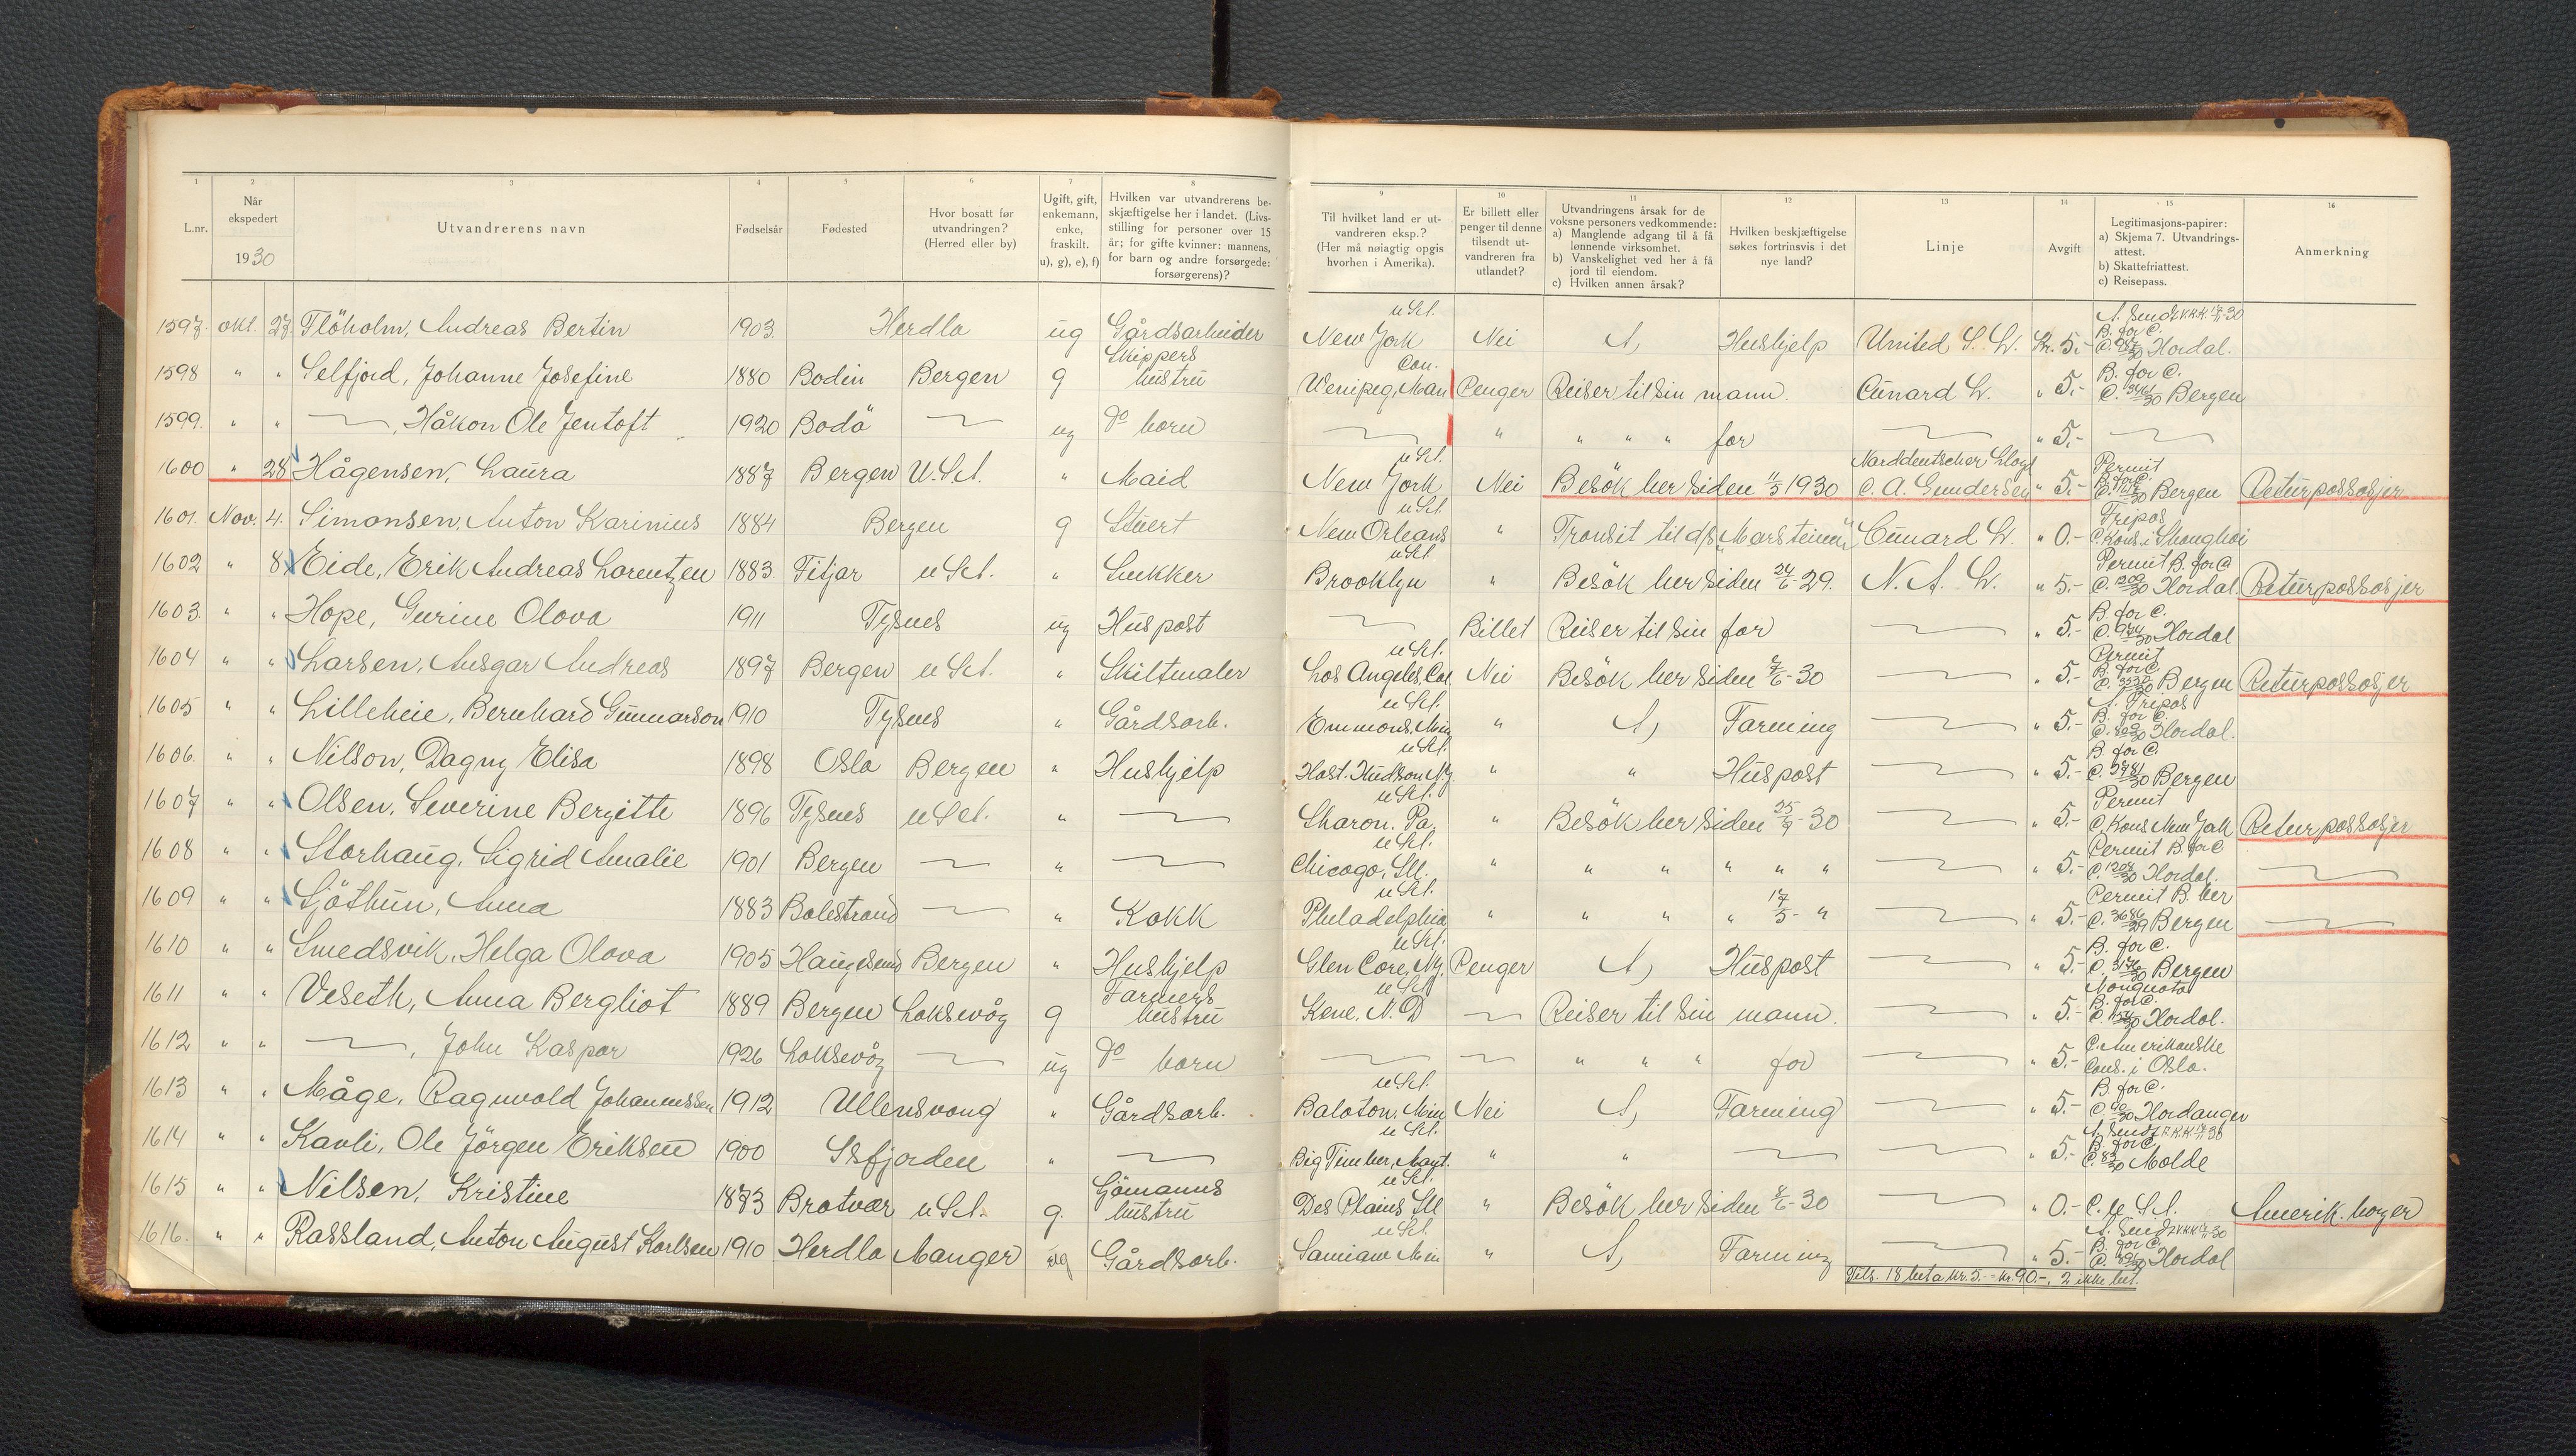 1 2 3 4 5 6 7 8 9 10 11 12 13 14 15 16
L.nr. Når ekspedert 1930 Utvandrerens navn Fødselsår Fødested Hvor bosatt før utvandringen? (Herred eller by) Ugift, gift, enkemann, enke, fraskilt. u), g), e), f) Hvilken var utvandrerens beskjæftigelse her i landet. (Livsstilling for personer over 15 år; for gifte kvinner: mannens, for barn og andre forsørgede: forsørgerens)? Til hvilket land er utvandreren eksp.? (Her må nøiagtig opgis hvorhen i Amerika). Er billett eller penger til denne tilsendt utvandreren fra utlandet? Utvandringens årsak for de voksne personers vedkommende: a) Manglende adgang til å få lønnende virksomhet. b) Vanskelighet ved her å få jord til eiendom. c) Hvilken annen årsak? Hvilken beskjæftigelse søkes fortrinsvis i det nye land? Linje Avgift Legitimasjons-papirer: a) Skjema 7. Utvandringsattest. b) Skattefriattest. c) Reisepass. Anmerkning
1597. okt. 27 Flöholm, Andreas Bertin 1903. Herdla ug Gårdsarbeider U.St. New York Nei A, Hushjelp United S. L. Kr. 5.- B. for C. Hordal.
1598 " " Selfjord, Johanne Josefine 1880 Bodin Bergen g Skippers hustru Can. Wenipeg, Man Penger Reiser til sin mann. Cunard L. " 5.- B. for C. Bergen
1599. " " ~, Håkon Ole Jentoft 1920 Bodö ~ ug do barn ~ " " " " far ~ " 5.- ~
1600 " 28 Hågensen, Laura 1887 Bergen U.St. " Maid U.St. New York Nei Besök her siden 11/5 1930 Norddeutscher Lloyd C. A. Gundersen " 5.- Permit B. for C. Bergen Returpassasjer
1601. Nov. 4. Simonsen, Anton Karinius 1884 Bergen g Stuert U.St. New Orleans " Transit til d/s "Marsteinen" Cunard L. " 0.- Fripas C. Kons. i Shanghai
1602 " 8 Eide, Erik Andreas Lorentzen 1883. Fitjar U.St. " Snekker U.St. Brooklyn " Besök her siden 24/6-29. N. A. L. " 5.- Permit B. for C. Hordal. Returpassasjer
1603. " " Hope, Gurine Olava 1911 Tysnes ug Huspost ~ Billet Reiser til sin far ~ " 5.- B. for C. Hordal
1604 " " Larsen, Ansgar Andreas 1897 Bergen U.St. " Skiltmaler U.St. Los Angeles, Cal. Nei Besök her siden 7/6-30 ~ " 5.- Permit B. for C. Bergen Returpassasjer
1605 " " Lilleheie, Bernhard Gunnarson 1910 Tysnes " Gårdsarb. U.St. Emmons, Min " A, Farming ~ " 5.- A. Fripas B. for C. Hordal.
1606. " " Nilson, Dagny Elisa 1898 Oslo Bergen " Hushjelp U.St. Hast. Hudson N.Y. " " Huspost ~ " 5.- B. for C. Bergen
1607 " " Olsen, Severine Bergitte 1896 Tysnes U.St. " ~ U.St. Sharon. Pa. " Besök her siden 25/9-30 ~ " 5.- Permit C. Kons New York Returpassasjer
1608 " " Storhaug, Sigrid Amalie 1901 Bergen ~ " ~ U.St. Chicago, Ill. " " " " " " ~ " 5.- Permit B. for C Hordal. ~
1609 " " Sjöthun, Anna 1883 Balestrand ~ " Kokk U.St. Philadelphia " " " " 17/5- " ~ " 5.- Permit B. her C. 3686/29 Bergen ~
1610 " " Smedsvik, Helga Olava 1905 Haugesund Bergen " Hushjelp U.St. Glen Core, N.Y. Penger A, Huspost ~ " 5.- B. for C. Bergen
1611 " " Veseth, Anna Bergliot 1889 Bergen Laksevåg g Farmers hustru U.St. Kene. N. D ~ Reiser til sin mann. ~ " 5.- Nonquota B. for C. Hordal.
1612 " " ~, John Kaspar 1926 Laksevåg ~ ug do barn ~ ~ " " " far ~ " 5.- C. Amerikanske Cons. i Oslo.
1613 " " Måge, Ragnvald Johannessen 1912 Ullensvang " Gårdsarb. U.St. Balaton, Min Nei A, Farming ~ " 5.- B. for C. Hardanger
1614 " " Kavli, Ole Jörgen Eriksen 1900 Isfjorden " ~ U.St. Big Timber, Mont. " " ~ ~ " 5.- B. for C. Molde
1615 " " Nilsen, Kristine 1873 Bratvær U.St. g. Sjömanns hustru U.St. Des Plains Ill " Besök her siden 8/6-30 ~ " 0.- C. U.St. Amerik. borger
1616. " " Rassland, Anton August Karlsen 1910 Herdla Manger ug Gårdsarb. U.St. Min " A, Farming ~ " 5.- B. for C. Hordal
Tils. 18 bet a kr. 5.- = kr. 90.-, 2 ikke bet.